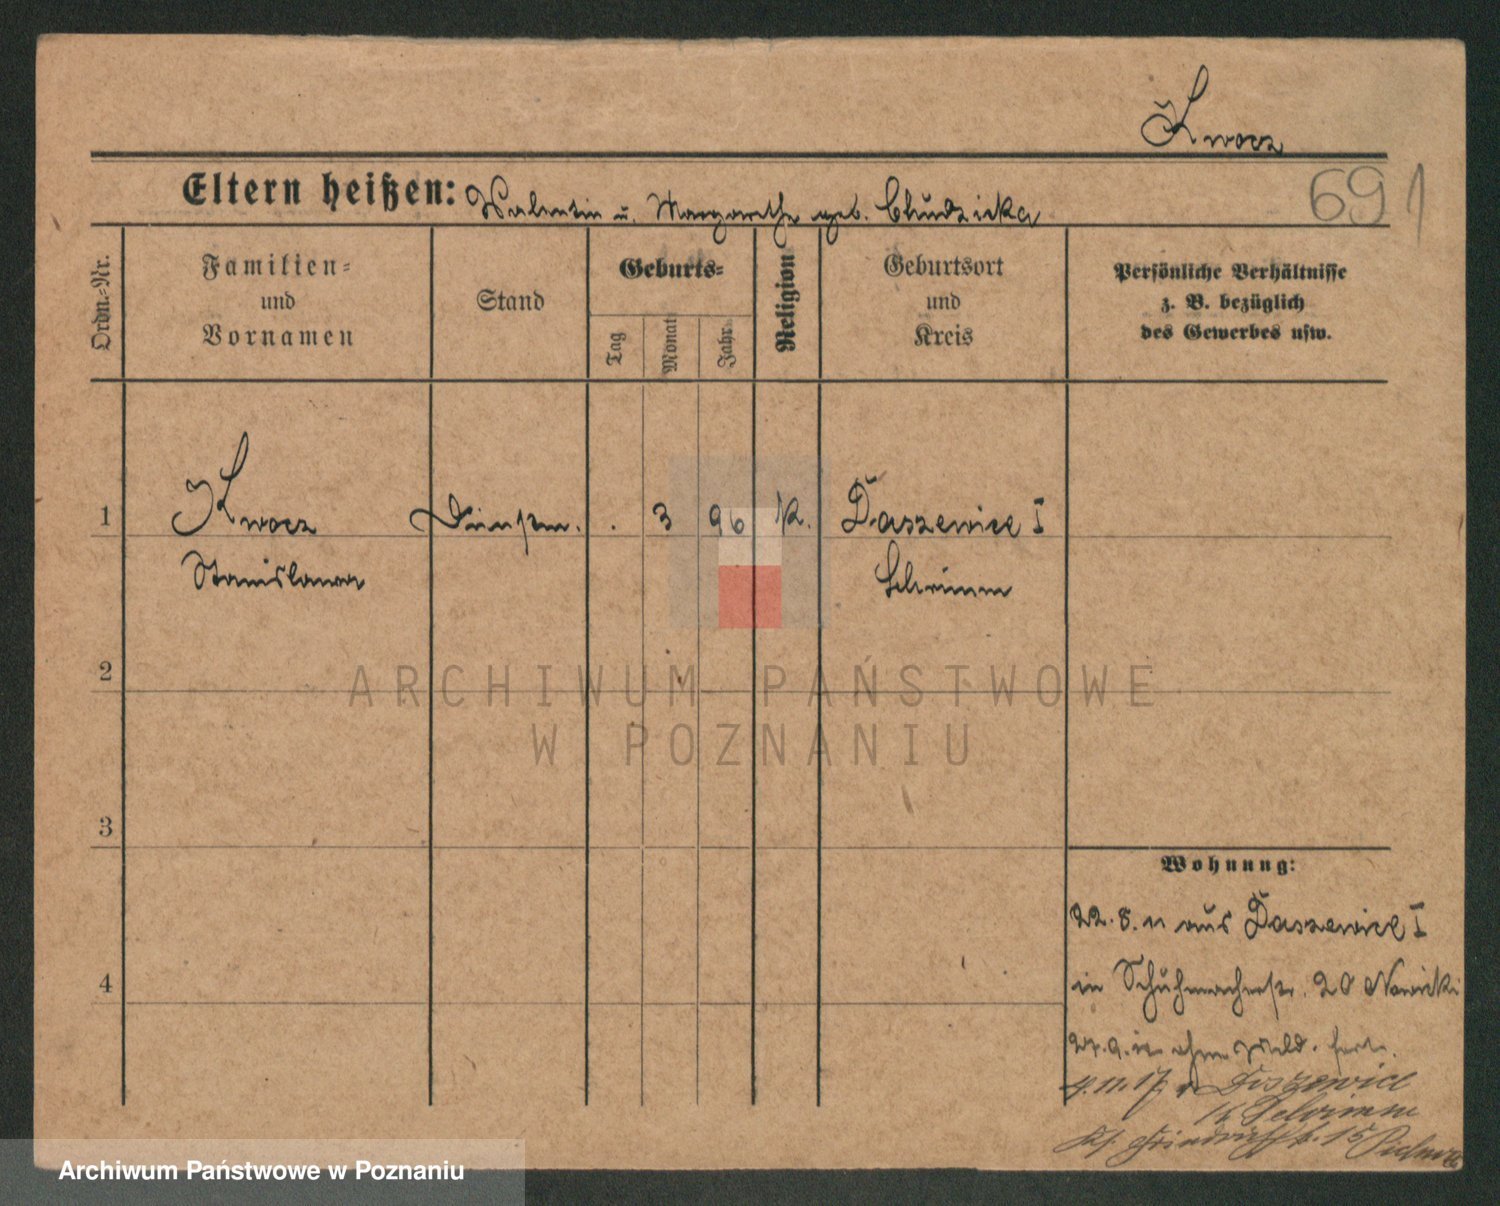 Kwocz
Eltern heißen: Valentin u. Margarethe geb. Chudzicka
691
Ordn.-Nr.
Familien-
und
Vornamen
Stand
Geburts-
Tag
Monat
Jahr
Religion
Geburtsort
und
Kreis
Persönliche Verhältnisse
z. B. bezüglich
des Gewerbes usw.
1 Kwocz Dienstm. . 3 96 k. Daszewice I
Stanislawa Schrimm
2
ARCHIWUM PAŃSTWOWE
W POZNANIU
3
Wohnung:
22.8.11 aus Daszewice I
4
in Schuhmacherstr. 20 Nowicki
ohne Meld. fort.
4.11.17 v Daszewice
K Schrimm
15
Archiwum Państwowe w Poznaniu